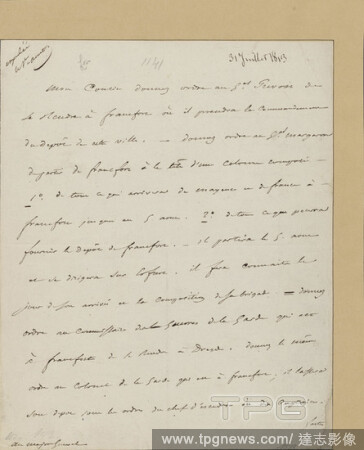 expédié
le 1er août
31 Juillet 1813
1141
Mon Cousin donnez ordre au Gal
se rendre à francfort où il prendra le commandement
du depôt de cette ville. — donnez ordre au Gal margaron
de partir de francfort à la tête d'une colonne composée —
1º. de tout ce qui arrivera de mayence et de france à —
francfort jusqu'au 5 aout. 2º. de tout ce que pourra
fournir le depôt de francfort. — il partira le 5 aout
et se dirigera sur Erfurt. il fera connaître le
jour de son arrivée et la composition de sa brigade — donnez
ordre au Commissaire des Guerres de la Garde qui est
à francfort de se rendre à Dresde. donnez le même
ordre au Colonel de la Garde qui est à francfort, il laissera
son depôt sous les ordres du chef d'escadron ou du Capitaine
au major général
TPG
www.tpgnews.com/達志影像